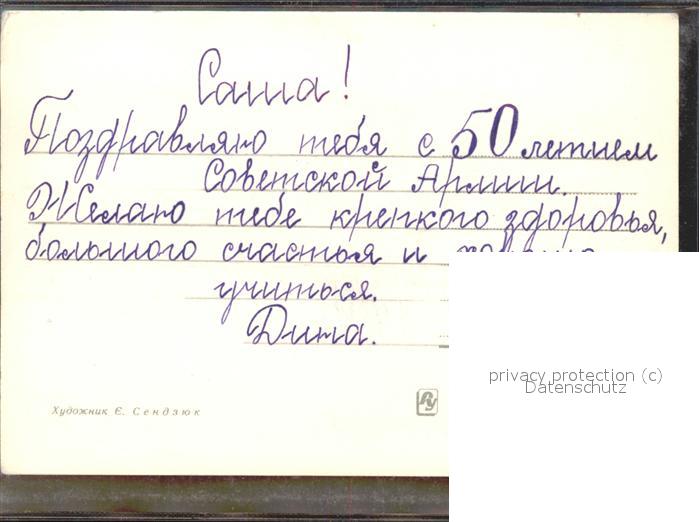 Саша!
Поздравляю тебя с 50 летием
Советской Армии.
Желаю тебе крепкого здоровья,
большого счастья и хорошо
учиться.
Дима.
Художник Є. Сендзюк
privacy protection (c)
Datenschutz